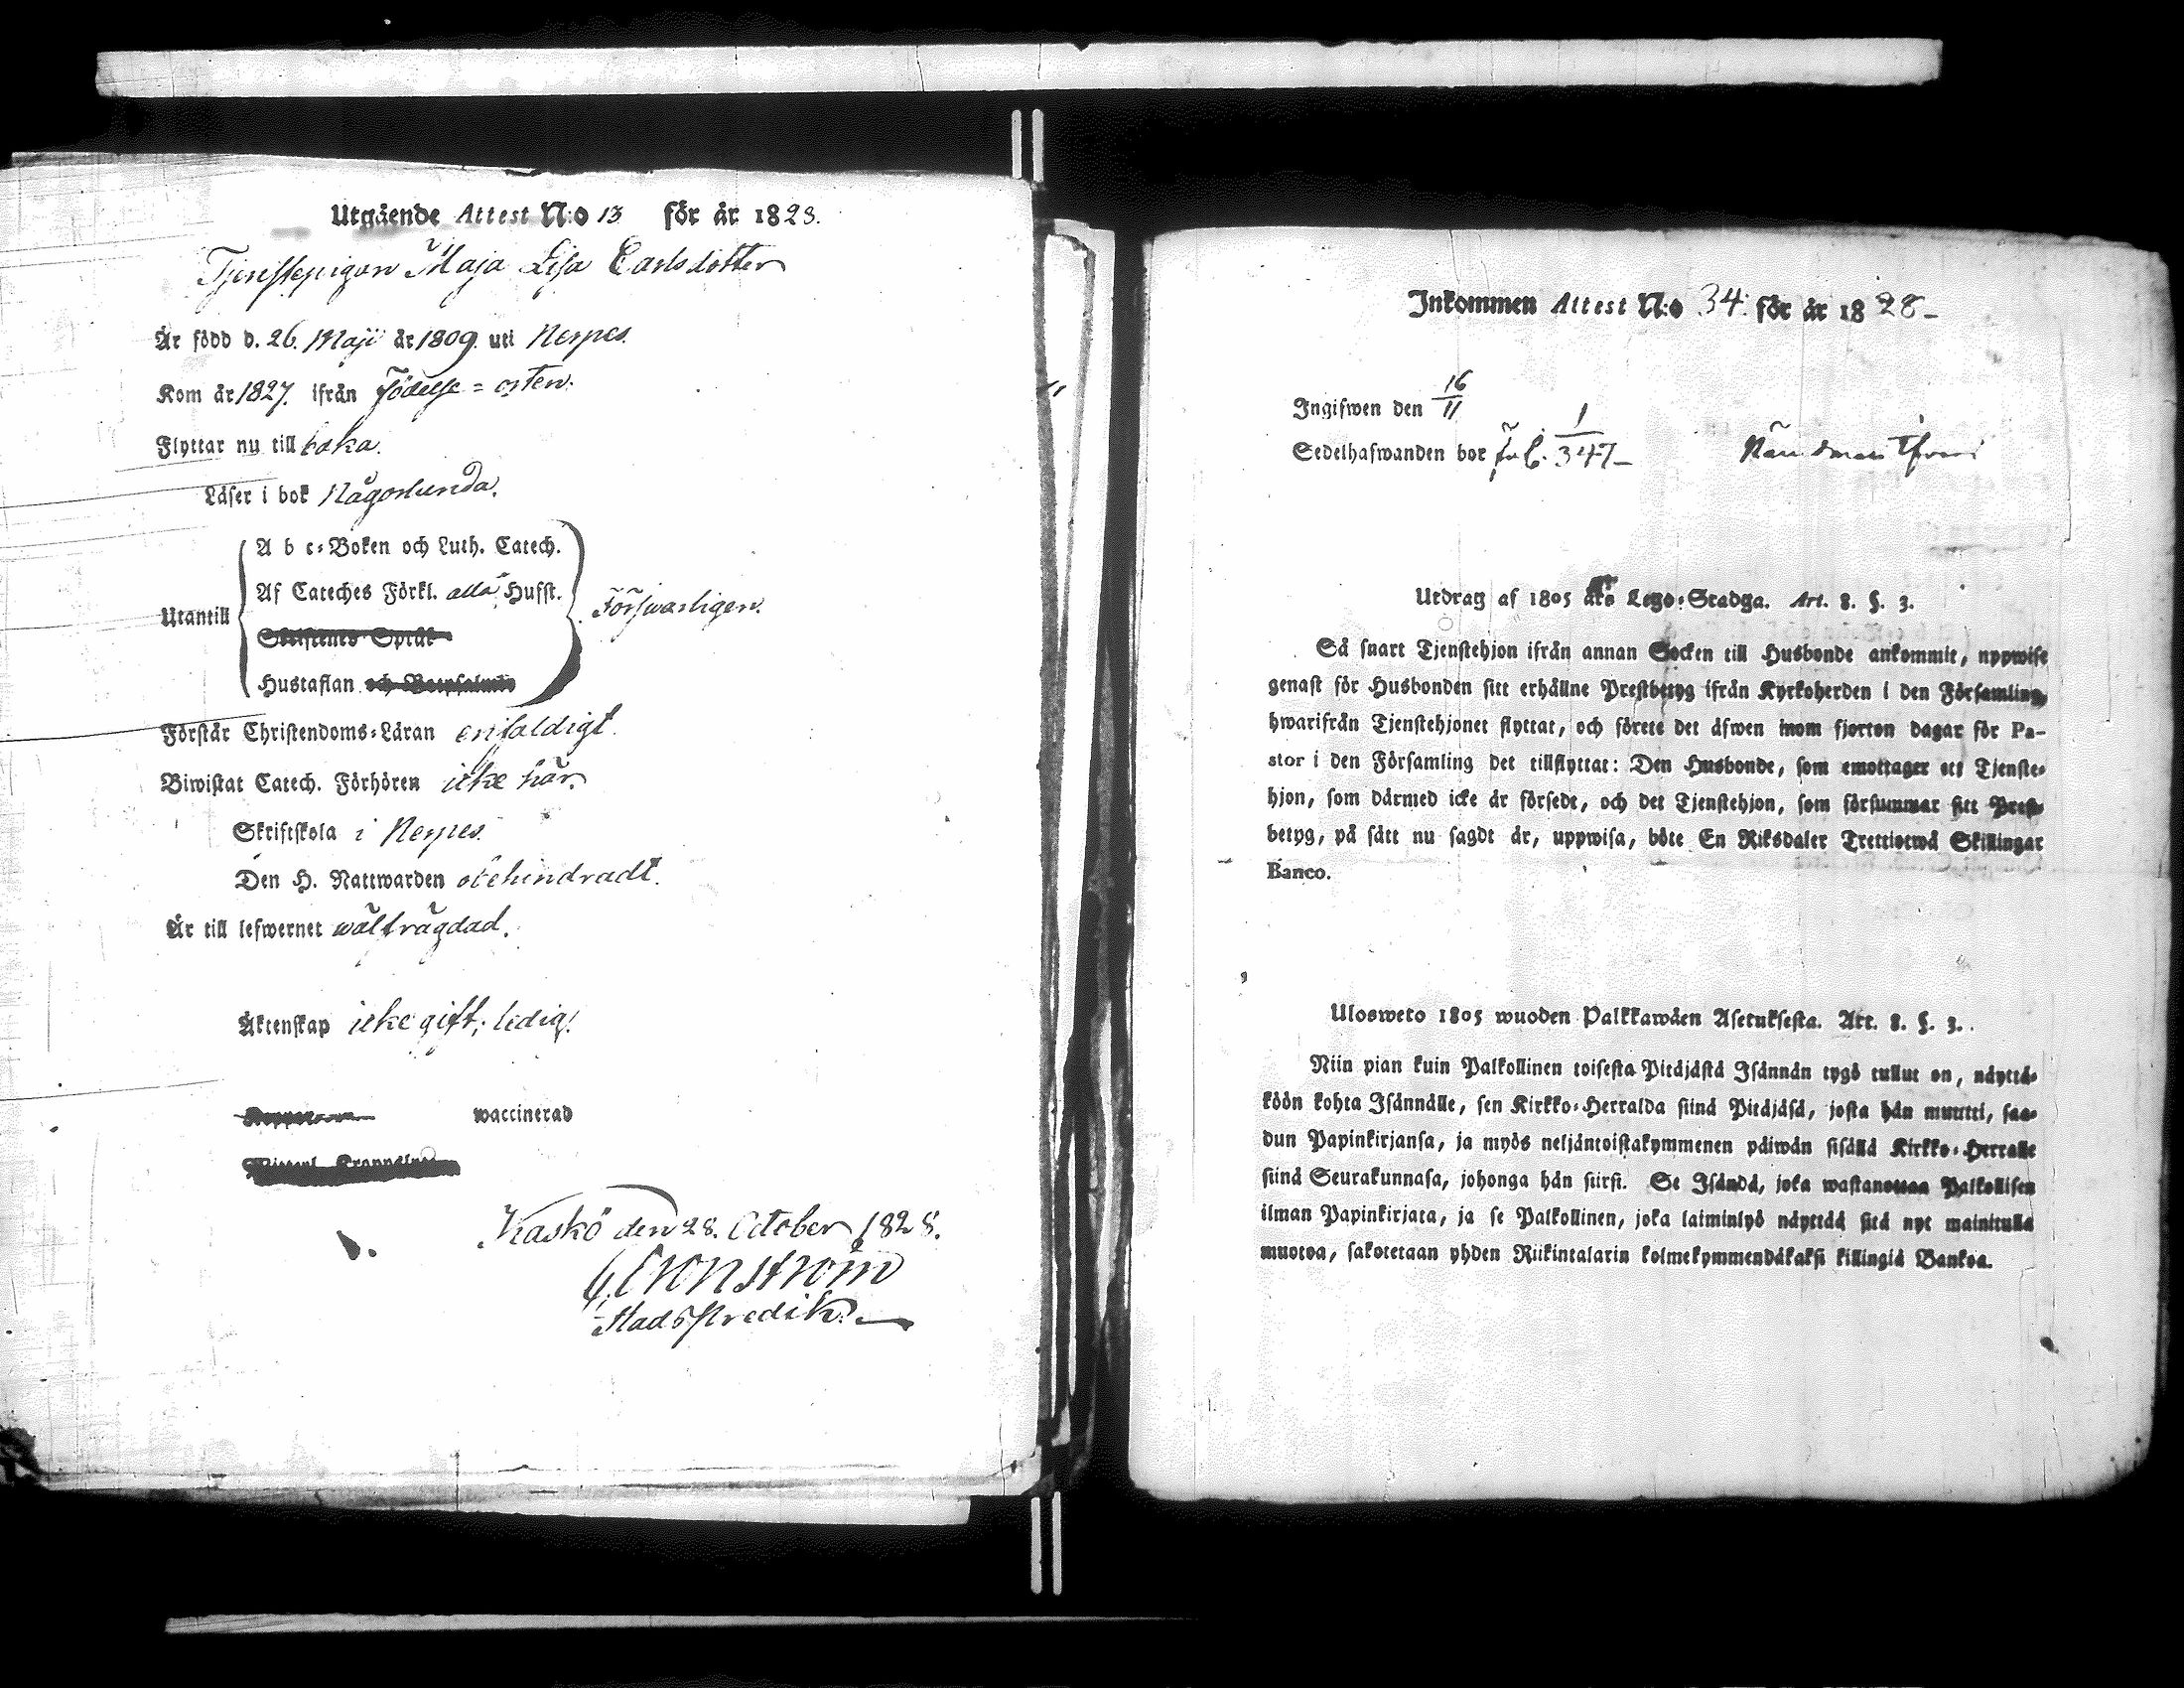 Utgående Attest N:o 13 för år 1828.
Tjenstepigan Maja Lisa Carlsdotter
Är född d. 26. Maji år 1809. uti Nerpes.
Kom år 1827. ifrån Födelse=orten.
Flyttar nu till baka.
Läser i bok Någorlunda.
A b c-Boken och Luth. Catech.
Af Cateches Förkl. alla Husst.
Utantill Försvarligen.
Skriftenes Språk
Hustaflan och Botpsalmer
Förstår Christendoms-Läran enfaldigt.
Biwistat Catech. Förhören icke här.
Skriftskola i Nerpes.
Den H. Nattwarden obehindradt.
Är till lefwernet wälfrägdad.
Äktenskap icke gift, ledig!
waccinerad
Kaskö den 28. October 1828.
G. Cronström
Stadspredik.
Inkommen Attest N:o 34. för år 1828-
Ingifwen den 16/11
Sedelhafwanden bor fol. 1/347-
Utdrag af 1805 års Lego-Stadga. Art. 8. §. 3.
Så snart Tjenstehjon ifrån annan Socken till Husbonde ankommit, uppwise
genast för Husbonden sitt erhållne Prestbetyg ifrån Kyrkoherden i den Församling,
hwarifrån Tjenstehjonet flyttat, och förete det äfwen inom fjorton dagar för Pa-
stor i den Församling det tillflyttat: Den Husbonde, som emottager ett Tjenste-
hjon, som därmed icke är försedt, och det Tjenstehjon, som försummar sitt Prest-
betyg, på sätt nu sagdt är, uppwisa, böte En Riksdaler Trettiotwå Skillingar
Banco.
Ulosweto 1805 wuoden Palkkawäen Asetuksesta. Art. 8. §. 3.
Niin pian kuin Palkollinen toisesta Pitäjästä Isännän tygö tullut on, näyttä-
köön kohta Isännälle, sen Kirkko-Herralda siinä Pitäjäsä, josta hän muutti, saa-
dun Papinkirjansa, ja myös neljäntoistakymmenen päiwän sisällä Kirkko-Herralle
siinä Seurakunnasa, johonga hän siirsi. Se Isändä, joka wastanottaa Palkollisen
ilman Papinkirjata, ja se Palkollinen, joka laiminlyö näyttää sitä nyt mainitulla
muotoa, sakotetaan yhden Riikintalarin kolmekymmendäkaksi killingiä Bankoa.